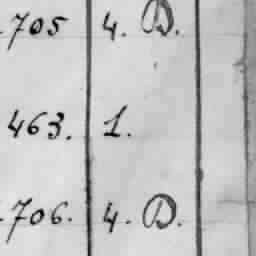 .705 4. D.
463. 1.
.706. 4. D.